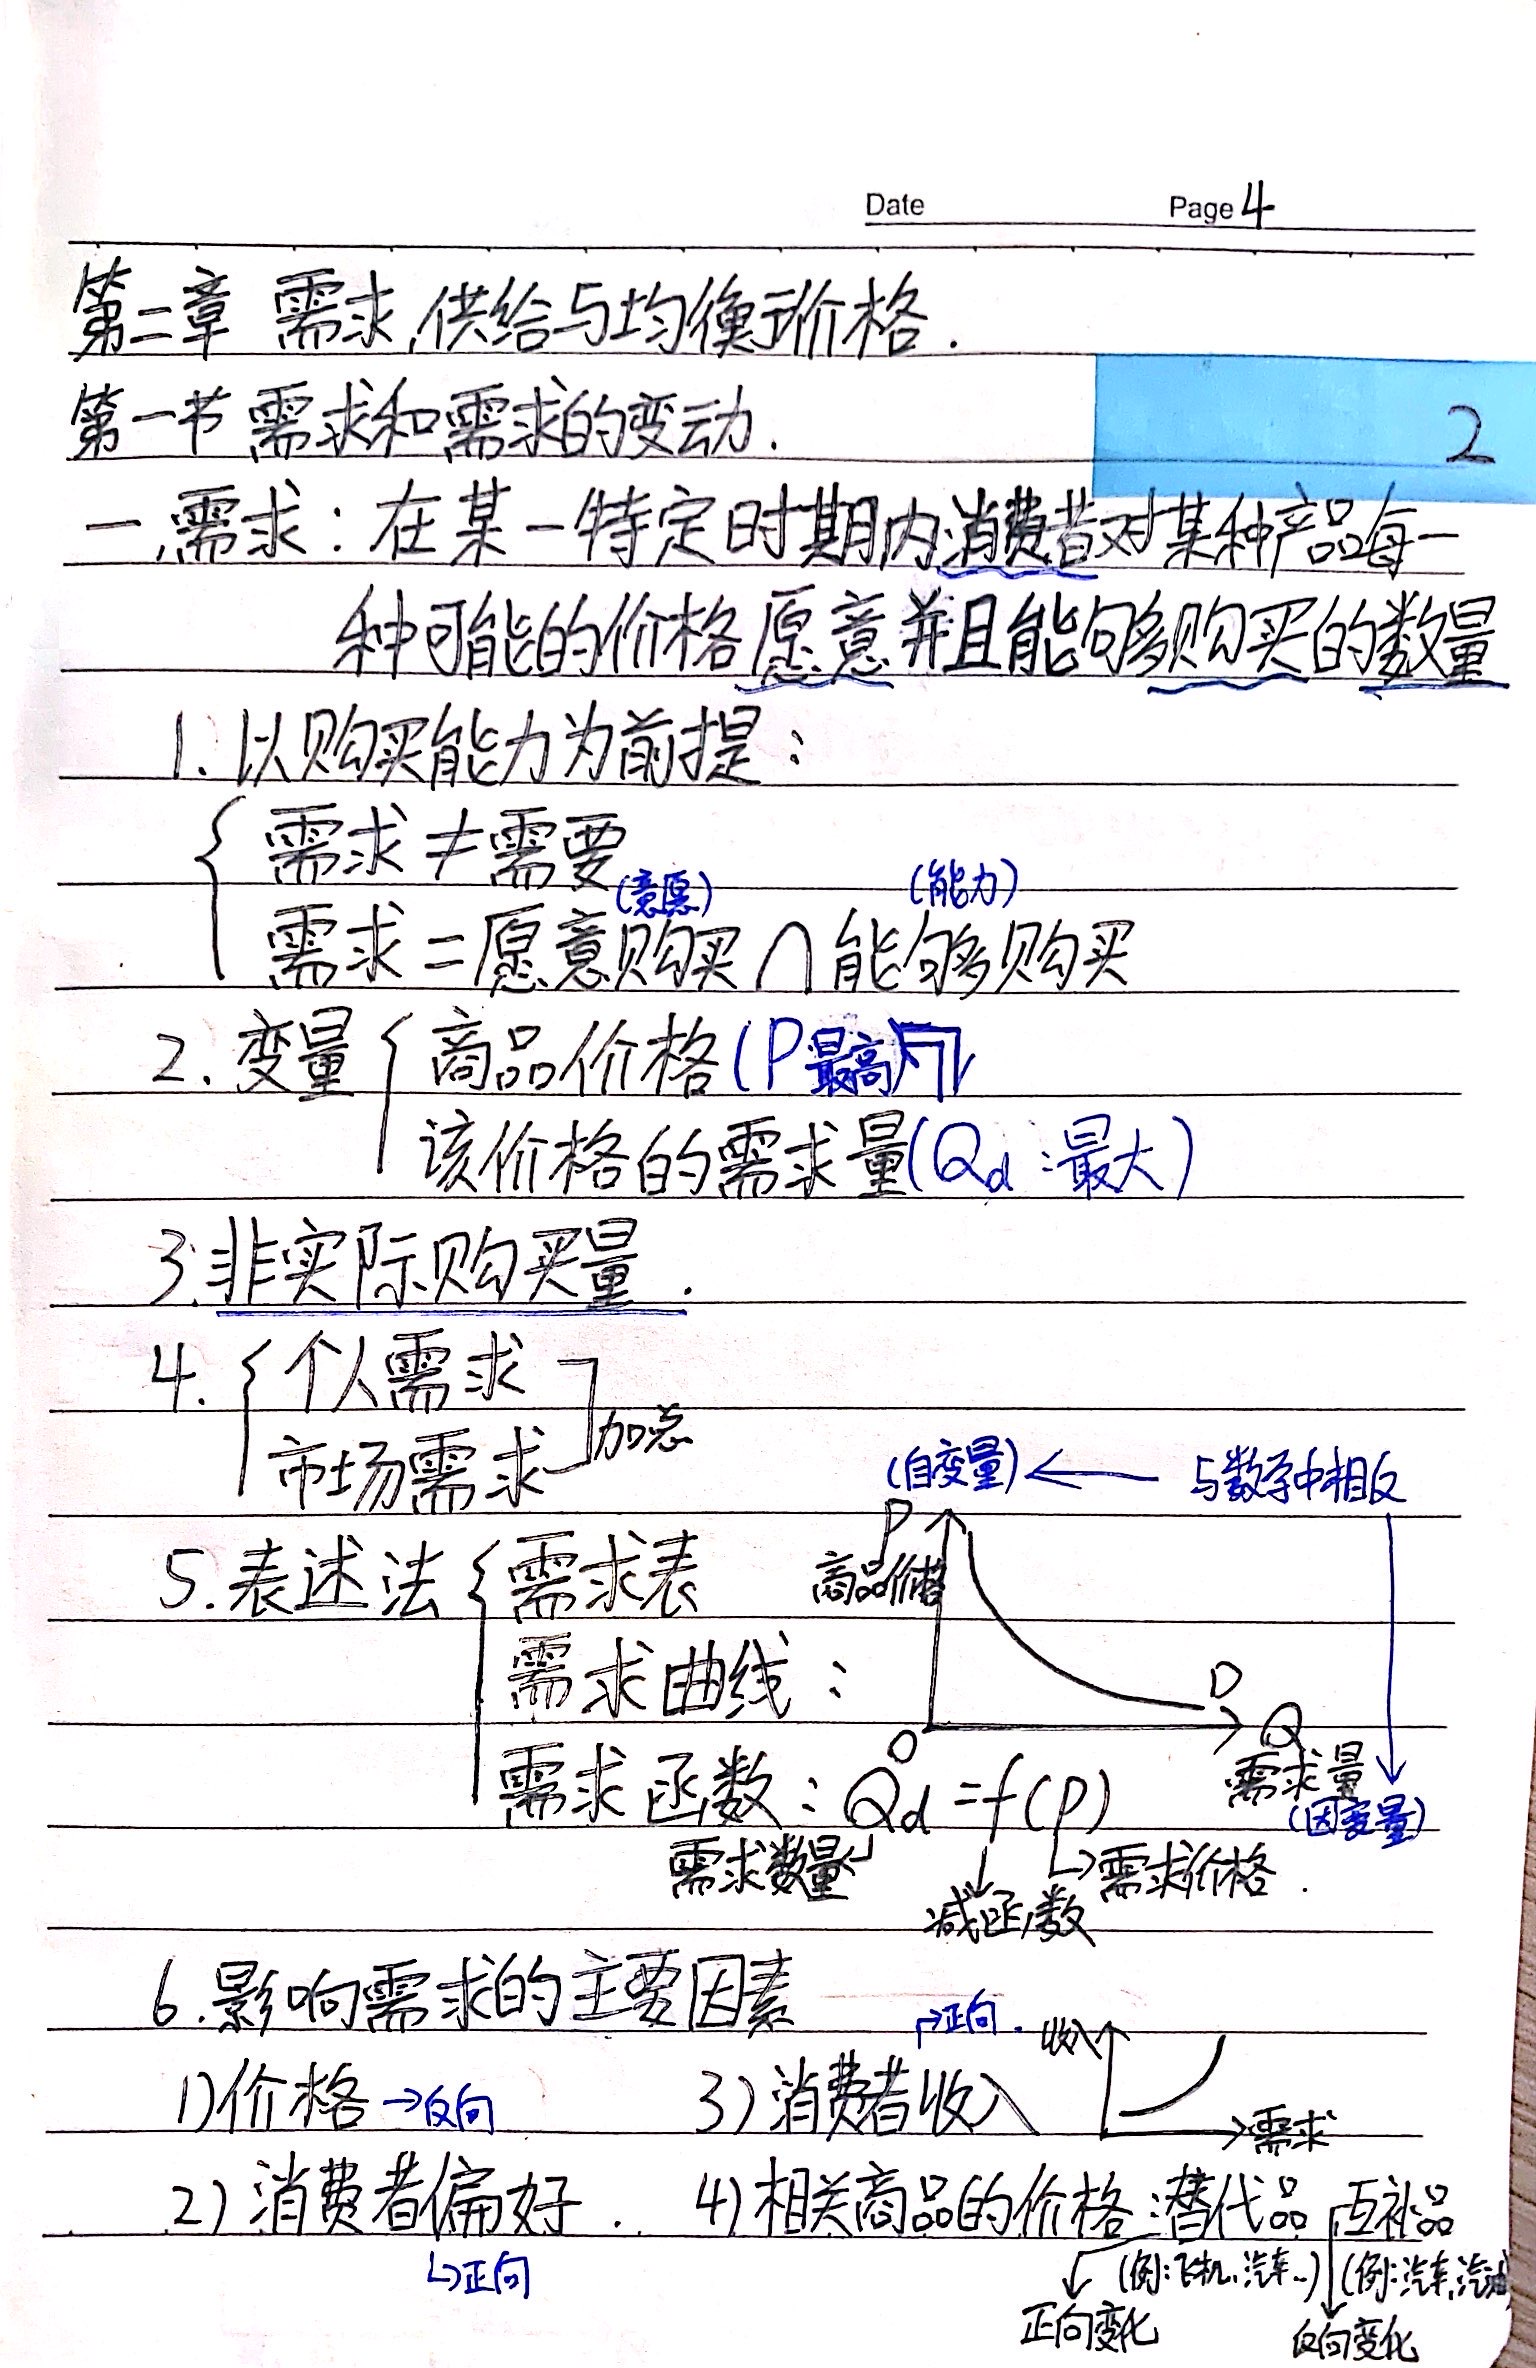 Date Page 4
第二章 需求、供给与均衡价格.
第一节 需求和需求的变动.
2
一、需求：在某一特定时期内消费者对某种产品每一
种可能的价格愿意并且能够购买的数量
1. 以购买能力为前提：
需求≠需要
(意愿) (能力)
需求=愿意购买∩能够购买
2. 变量 商品价格(P最高)
该价格的需求量(Qd：最大)
3. 非实际购买量.
4. 个人需求
市场需求 加总
(自变量) ← 与数学中相反
P
5. 表述法 需求表 商品价格
需求曲线： D
O Q
需求量
(因变量)
需求函数：Qd=f(P)
需求数量 减函数 需求价格.
6. 影响需求的主要因素
→正向. 收入
1) 价格→反向 3) 消费者收入 需求
2) 消费者偏好. 4) 相关商品的价格：替代品 互补品
↳正向 (例：飞机、汽车..) (例：汽车,汽油
正向变化 反向变化